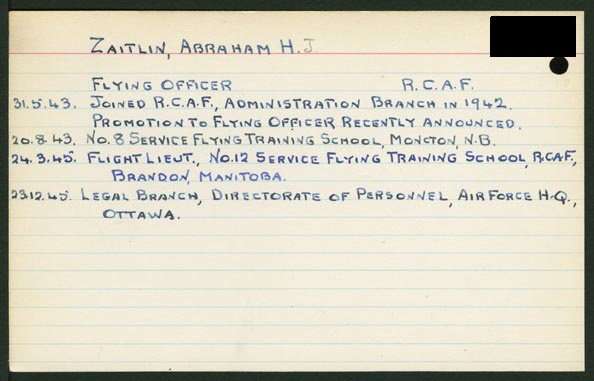 ZAITLIN, ABRAHAM H.J.
FLYING OFFICER R.C.A.F.
31.5.43. JOINED R.C.A.F., ADMINISTRATION BRANCH IN 1942.
PROMOTION TO FLYING OFFICER RECENTLY ANNOUNCED.
20.8.43. NO. 8 SERVICE FLYING TRAINING SCHOOL, MONCTON, N.B.
24.3.45. FLIGHT LIEUT., NO.12 SERVICE FLYING TRAINING SCHOOL, R.C.A.F.,
BRANDON, MANITOBA.
23.12.45. LEGAL BRANCH, DIRECTORATE OF PERSONNEL, AIR FORCE H.Q.,
OTTAWA.